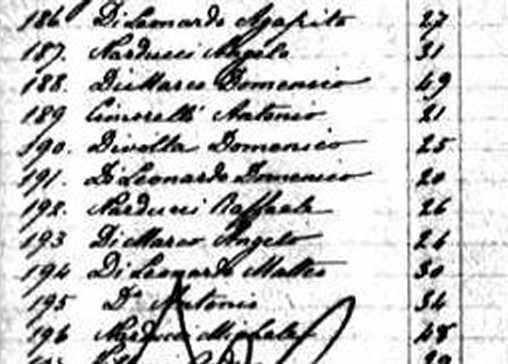 186 DiLeonardo Agapito 27
187. Narducci Angelo 31
188. DiMarco Domenico 49
189 Cimorelli Antonio 21
190. Divolta Domenico 25
191. DiLeonardo Domenico 20
192. Narducci Raffaele 26
193 DiMarco Angelo 26
194 DiLeonardo Matteo 30
195 Do Antonio 34
196 Narducci Michele 48